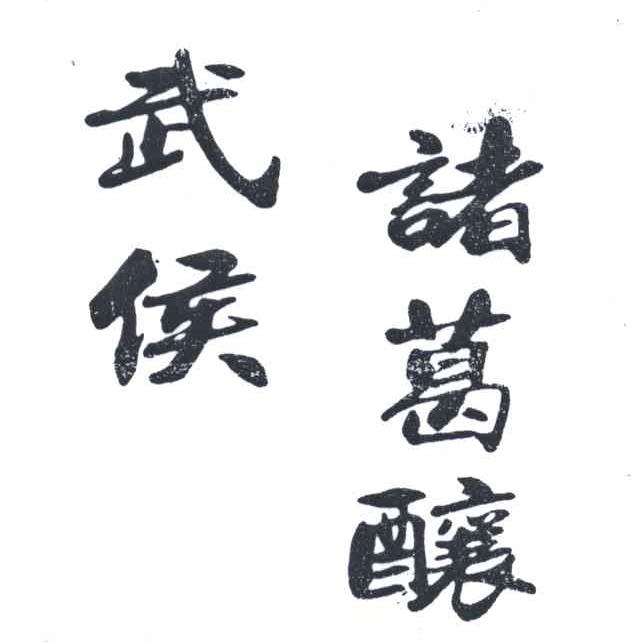 諸葛釀
武侯